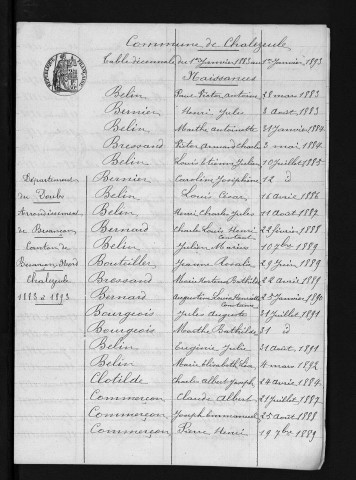 Commune de Chalezeule
Table décennale du 1er Janvier 1883 au 1er Janvier 1893
Naissances
Belin Paul Victor Antoine 28 mars 1883
Bernier Henri Jules 3 août 1883
Belin Marthe Antoinette 31 Janvier 1884
Bressand Victor Armand Charles 3 mai 1884
Belin Louis Etienne Julien 10 Juillet 1885
Département
du Doubs
Arrondissement
de Besançon
Canton de
Besançon Nord
Chalezeule
1883 à 1893
Bernier Caroline Joséphine 12 d
Belin Louis César 16 avril 1886
Belin Henri Charles Jules 11 août 1887
Bernard Charles Louis Henri Constant 22 février 1888
Belin Julien Marius 10 7bre 1889
Bouteiller Jeanne Rosalie 29 Juin 1889
Bressand Marie Hortense Bathilde 22 avril 1889
Bernard Augustine Louise Henriette 23 Janvier 1890
Bourgeois Jules Auguste 31 Juillet 1891
Bourgeois Marthe Bathilde 31 d
Belin Eugénie Julie 31 août 1891
Belin Marie Elisabeth 4 mars 1892
Clotilde Charles Albert Joseph 24 avril 1884
Commerçon Claude Albert 21 Juillet 1887
Commerçon Joseph Emmanuel 25 août 1888
Commerçon Pierre Henri 19 7bre 1889